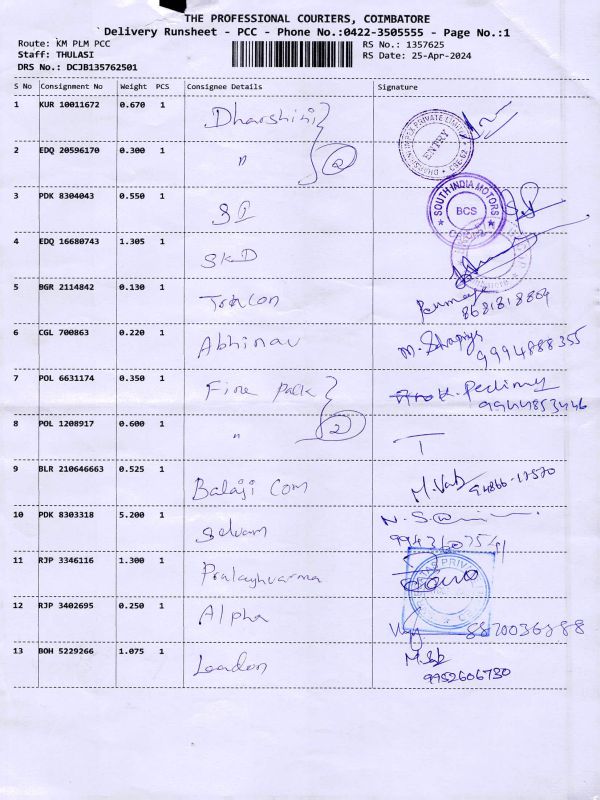 THE PROFESSIONAL COURIERS, COIMBATORE
Delivery Runsheet - PCC - Phone No.:0422-3505555 - Page No.:1
Route: KM PLM PCC RS No.: 1357625
Staff: THULASI RS Date: 25-Apr-2024
DRS No.: DCJB135762501
S No Consignment No Weight PCS Consignee Details Signature
1 KUR 10011672 0.670 1 Dharshini
ENTRY
2 EDQ 20596170 0.300 1 " 2
3 PDK 8304043 0.550 1
SOUTH INDIA MOTORS
BCS
4 EDQ 16680743 1.305 1 SKD
5 BGR 2114842 0.130 1
8681818809
6 CGL 700863 0.220 1 Abhinav
9994888355
7 POL 6631174 0.350 1 Fine pack
9944853446
8 POL 1208917 0.600 1 " 2
9 BLR 210646663 0.525 1 Balaji Com
94866-17570
10 PDK 8303318 5.200 1 Selvam
11 RJP 3346116 1.300 1 Pralayhvarma
12 RJP 3402695 0.250 1 Alpha
13 BOH 5229266 1.075 1 London
9952606730